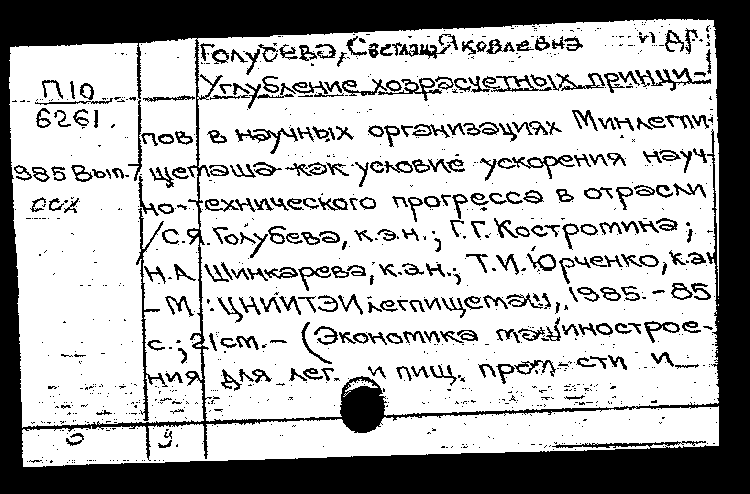 Голубева, Светлана Яковлевна и др.
П10 Углубление хозрасчетных принци-
6261.
пов в научных организациях Минлегпи-
985 Вып.7 щемаша как условие ускорения науч-
ОСХ но-технического прогресса в отрасли
/С.Я. Голубева, к.э.н.; Г.Г. Костромина;
Н.А. Шинкарева, к.э.н.; Т.И. Юрченко, к.эн
– М.: ЦНИИТЭИлегпищемаш, 1985. – 85
с.; 21 см. – (Экономика машинострое-
ния для лег. и пищ. пром-сти и
9.